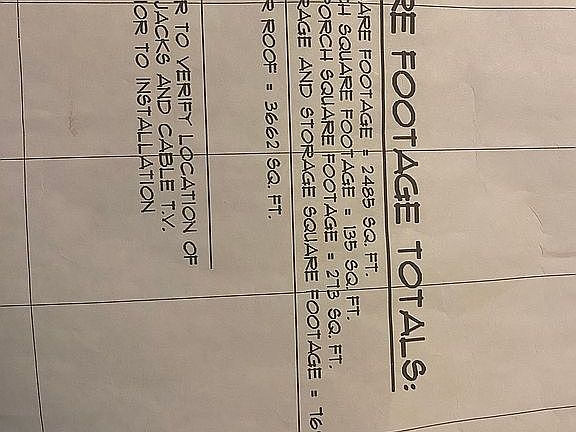 RE FOOTAGE TOTALS:
ARE FOOTAGE = 2485 SQ. FT.
H SQUARE FOOTAGE = 135 SQ. FT.
PORCH SQUARE FOOTAGE = 273 SQ. FT.
RAGE AND STORAGE SQUARE FOOTAGE = 76
R ROOF = 3662 SQ. FT.
R TO VERIFY LOCATION OF
JACKS AND CABLE T.V.
IOR TO INSTALLATION